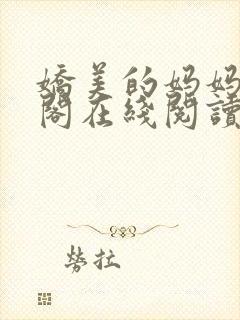 嬌美的妈妈
閣在綫閱讀
勞拉